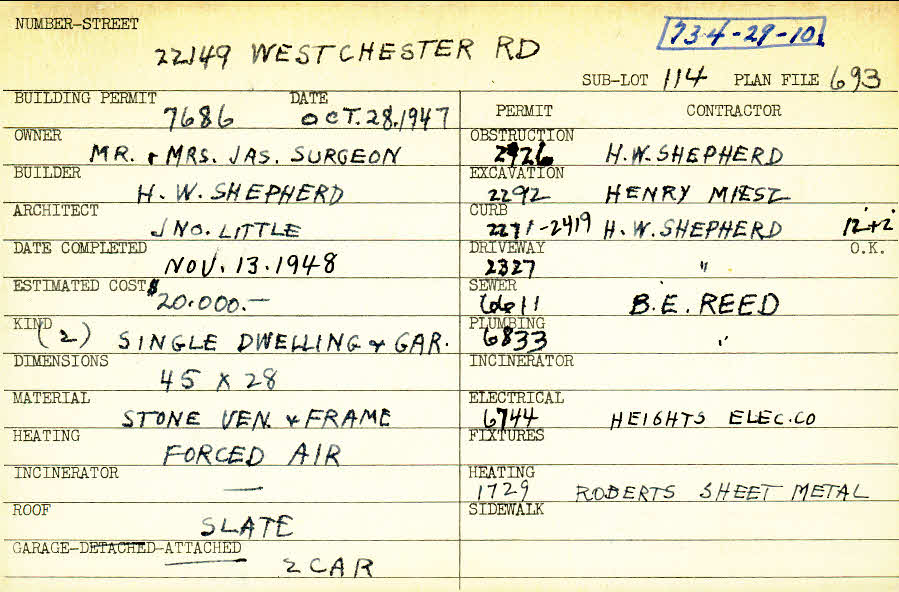 NUMBER-STREET
22149 WESTCHESTER RD
734-29-10
SUB-LOT 114 PLAN FILE 693
BUILDING PERMIT 7686 DATE OCT. 28, 1947
OWNER MR. & MRS. JAS. SURGEON
BUILDER H. W. SHEPHERD
ARCHITECT JNO. LITTLE
DATE COMPLETED NOV. 13. 1948
ESTIMATED COST $ 20.000.—
KIND (2) SINGLE DWELLING & GAR.
DIMENSIONS 45 X 28
MATERIAL STONE VEN. & FRAME
HEATING FORCED AIR
INCINERATOR —
ROOF SLATE
GARAGE-DETACHED-ATTACHED 2 CAR
PERMIT CONTRACTOR
OBSTRUCTION 2926 H.W. SHEPHERD
EXCAVATION 2292 HENRY
CURB 2271-2419 H. W. SHEPHERD
O.K.
DRIVEWAY 2327 "
SEWER 6611 B. E. REED
PLUMBING 6833 "
INCINERATOR
ELECTRICAL 6744 HEIGHTS ELEC. CO
FIXTURES
HEATING 1729 ROBERTS SHEET METAL
SIDEWALK